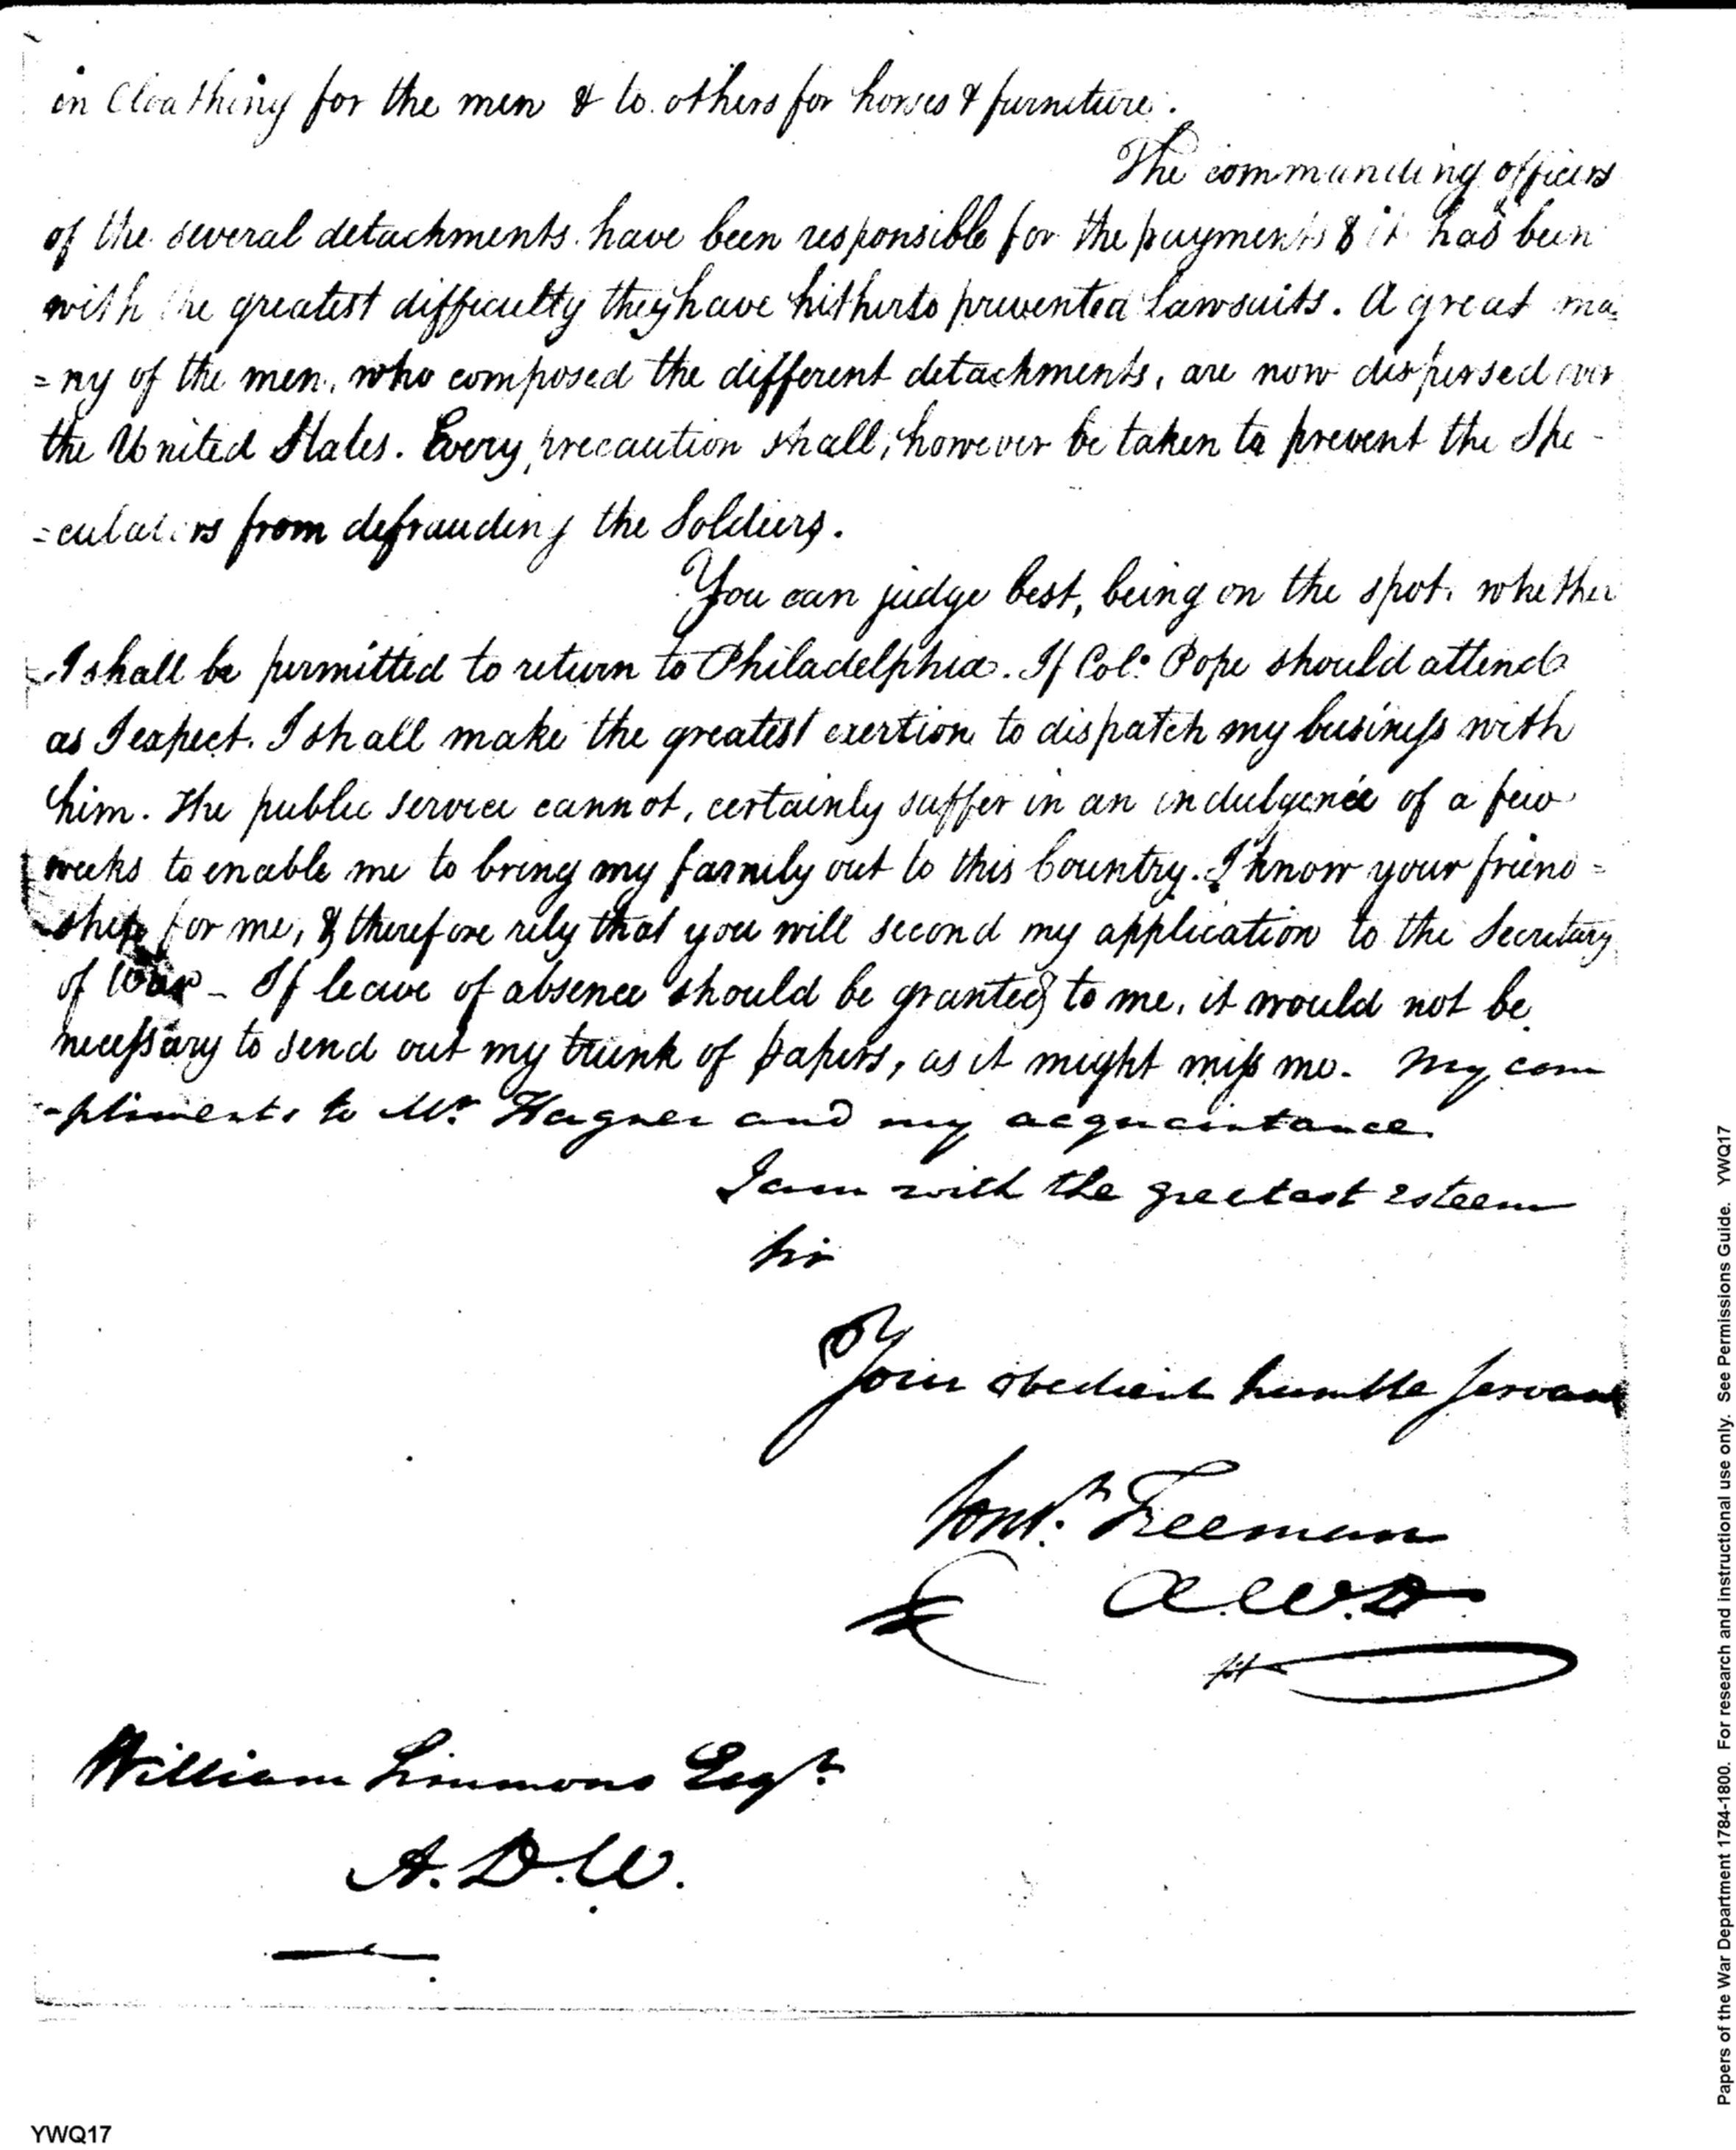 in Cloathing for the men & to others for horses & furniture.
The commanding officers
of the several detachments have been responsible for the payments & it has been
with the greatest difficulty they have hitherto prevented Lawsuits. A great ma-
=ny of the men, who composed the different detachments, are now dispersed over
the United States. Every precaution shall, however be taken to prevent the Spe-
=culators from defrauding the Soldiers.
You can judge best, being on the spot, whether
I shall be permitted to return to Philadelphia. If Col. Pope should attend
as I expect. I shall make the greatest exertion to dispatch my business with
him. The public service cannot, certainly suffer in an indulgence of a few
weeks to enable me to bring my family out to this Country. I know your friend=
ship for me, & therefore rely that you will second my application to the Secretary
of War - If leave of absence should be granted to me, it would not be
necessary to send out my trunk of papers, as it might miss me. My com
-pliments to Mr. Hagner and my acquaintance.
I am with the greatest esteem
Sir
Your obedient humble Servant
Const. Freeman
A.W.D
William Simmons Esqr.
A.D.W.
YWQ17
Papers of the War Department 1784-1800. For research and instructional use only. See Permissions Guide. YWQ17